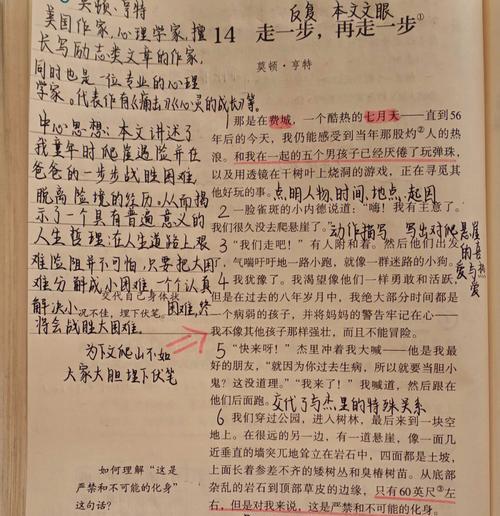 莫顿、亨特
美国作家,心理学家,擅
长写励志类文章的作家,
同时也是一位专业的心理
学家。代表作有《痛击》《心灵的成长》等。
中心思想:本文讲述了
我童年时爬崖遇险并在
爸爸的一步步战胜困难,
脱离险境的经历。从而揭
示了一个具有普遍意义的
人生哲理:在人生道路上艰
难险阻并不可怕,只要把大困
难分解成小困难,一个个认真
解决小困难,终
将会战胜大困难。
交代自己身体状
况不佳,埋下伏笔。
为下文爬山不如
大家大胆埋下伏笔
如何理解“这是
严禁和不可能的化身”
这句话?
反复 本文文眼
14 走一步,再走一步①
莫顿·亨特
1 那是在费城,一个酷热的七月天——直到56
年后的今天,我仍能感受到当年那股灼②人的热
浪。和我在一起的五个男孩子已经厌倦了玩弹珠,
以及用透镜在干树叶上烧洞的游戏,正在寻觅其
他好玩的事。点明人物、时间、地点、起因
2 一脸雀斑的小内德说道:“嗨!我有主意了。
我们很久没去爬悬崖了。”动作描写 写出对爬悬崖
的喜爱与热爱
3 “我们走吧!”有人附和着。然后他们出发
了,气喘吁吁地一路小跑,就像一群迷路的小狗。
4 我犹豫了。我渴望像他们一样勇敢和活跃,
但是在过去的八年岁月中,我绝大部分时间都是
一个病弱的孩子,并将妈妈的警告牢记在心——
我不像其他孩子那样强壮,而且不能冒险。
5 “快来呀!”杰里冲着我大喊——他是我最
好的朋友,“就因为你过去生病,所以就要当胆小
鬼?这没道理。”“我来了!”我喊道,然后跟在
他们后面跑。交代了与杰里的特殊关系
6 我们穿过公园,进入树林,最后来到一块空
地上。在很远的另一边,有一道悬崖,像一面几
近垂直的墙突兀地耸立在岩石中,四面都是土坡,
上面长着参差不齐的矮树丛和臭椿树苗。从底部
杂乱的岩石到顶部草皮的边缘,只有60英尺③左
右,但是对我来说,这是严禁和不可能的化身。